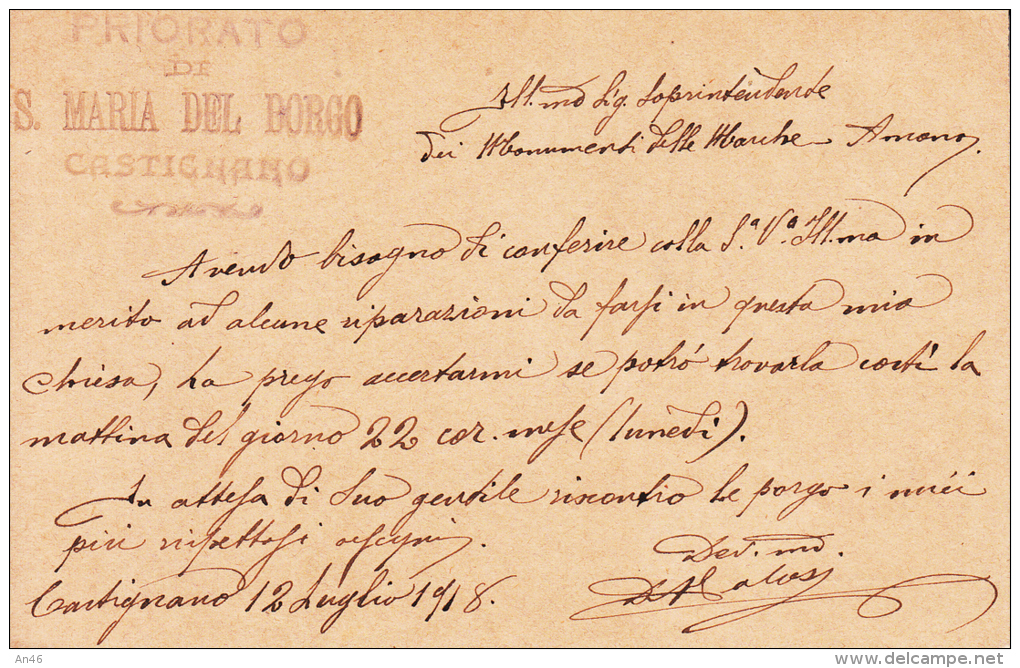 PRIORATO
DI
S. MARIA DEL BORGO
CASTIGNANO
Ill.mo Sig. Soprintendente
dei Monumenti delle Marche - Ancona
Avendo bisogno di conferire colla S.a V.a Ill.ma in
merito ad alcune riparazioni da farsi in questa mia
Chiesa, La prego accertarmi se potrò trovarla costì la
mattina del giorno 22 cor. mese (lunedì).
In attesa di Suo gentile riscontro Le porgo i miei
più rispettosi ossequi.
Dev.mo
Castignano 12 Luglio 1918.
An46
www.delcampe.net